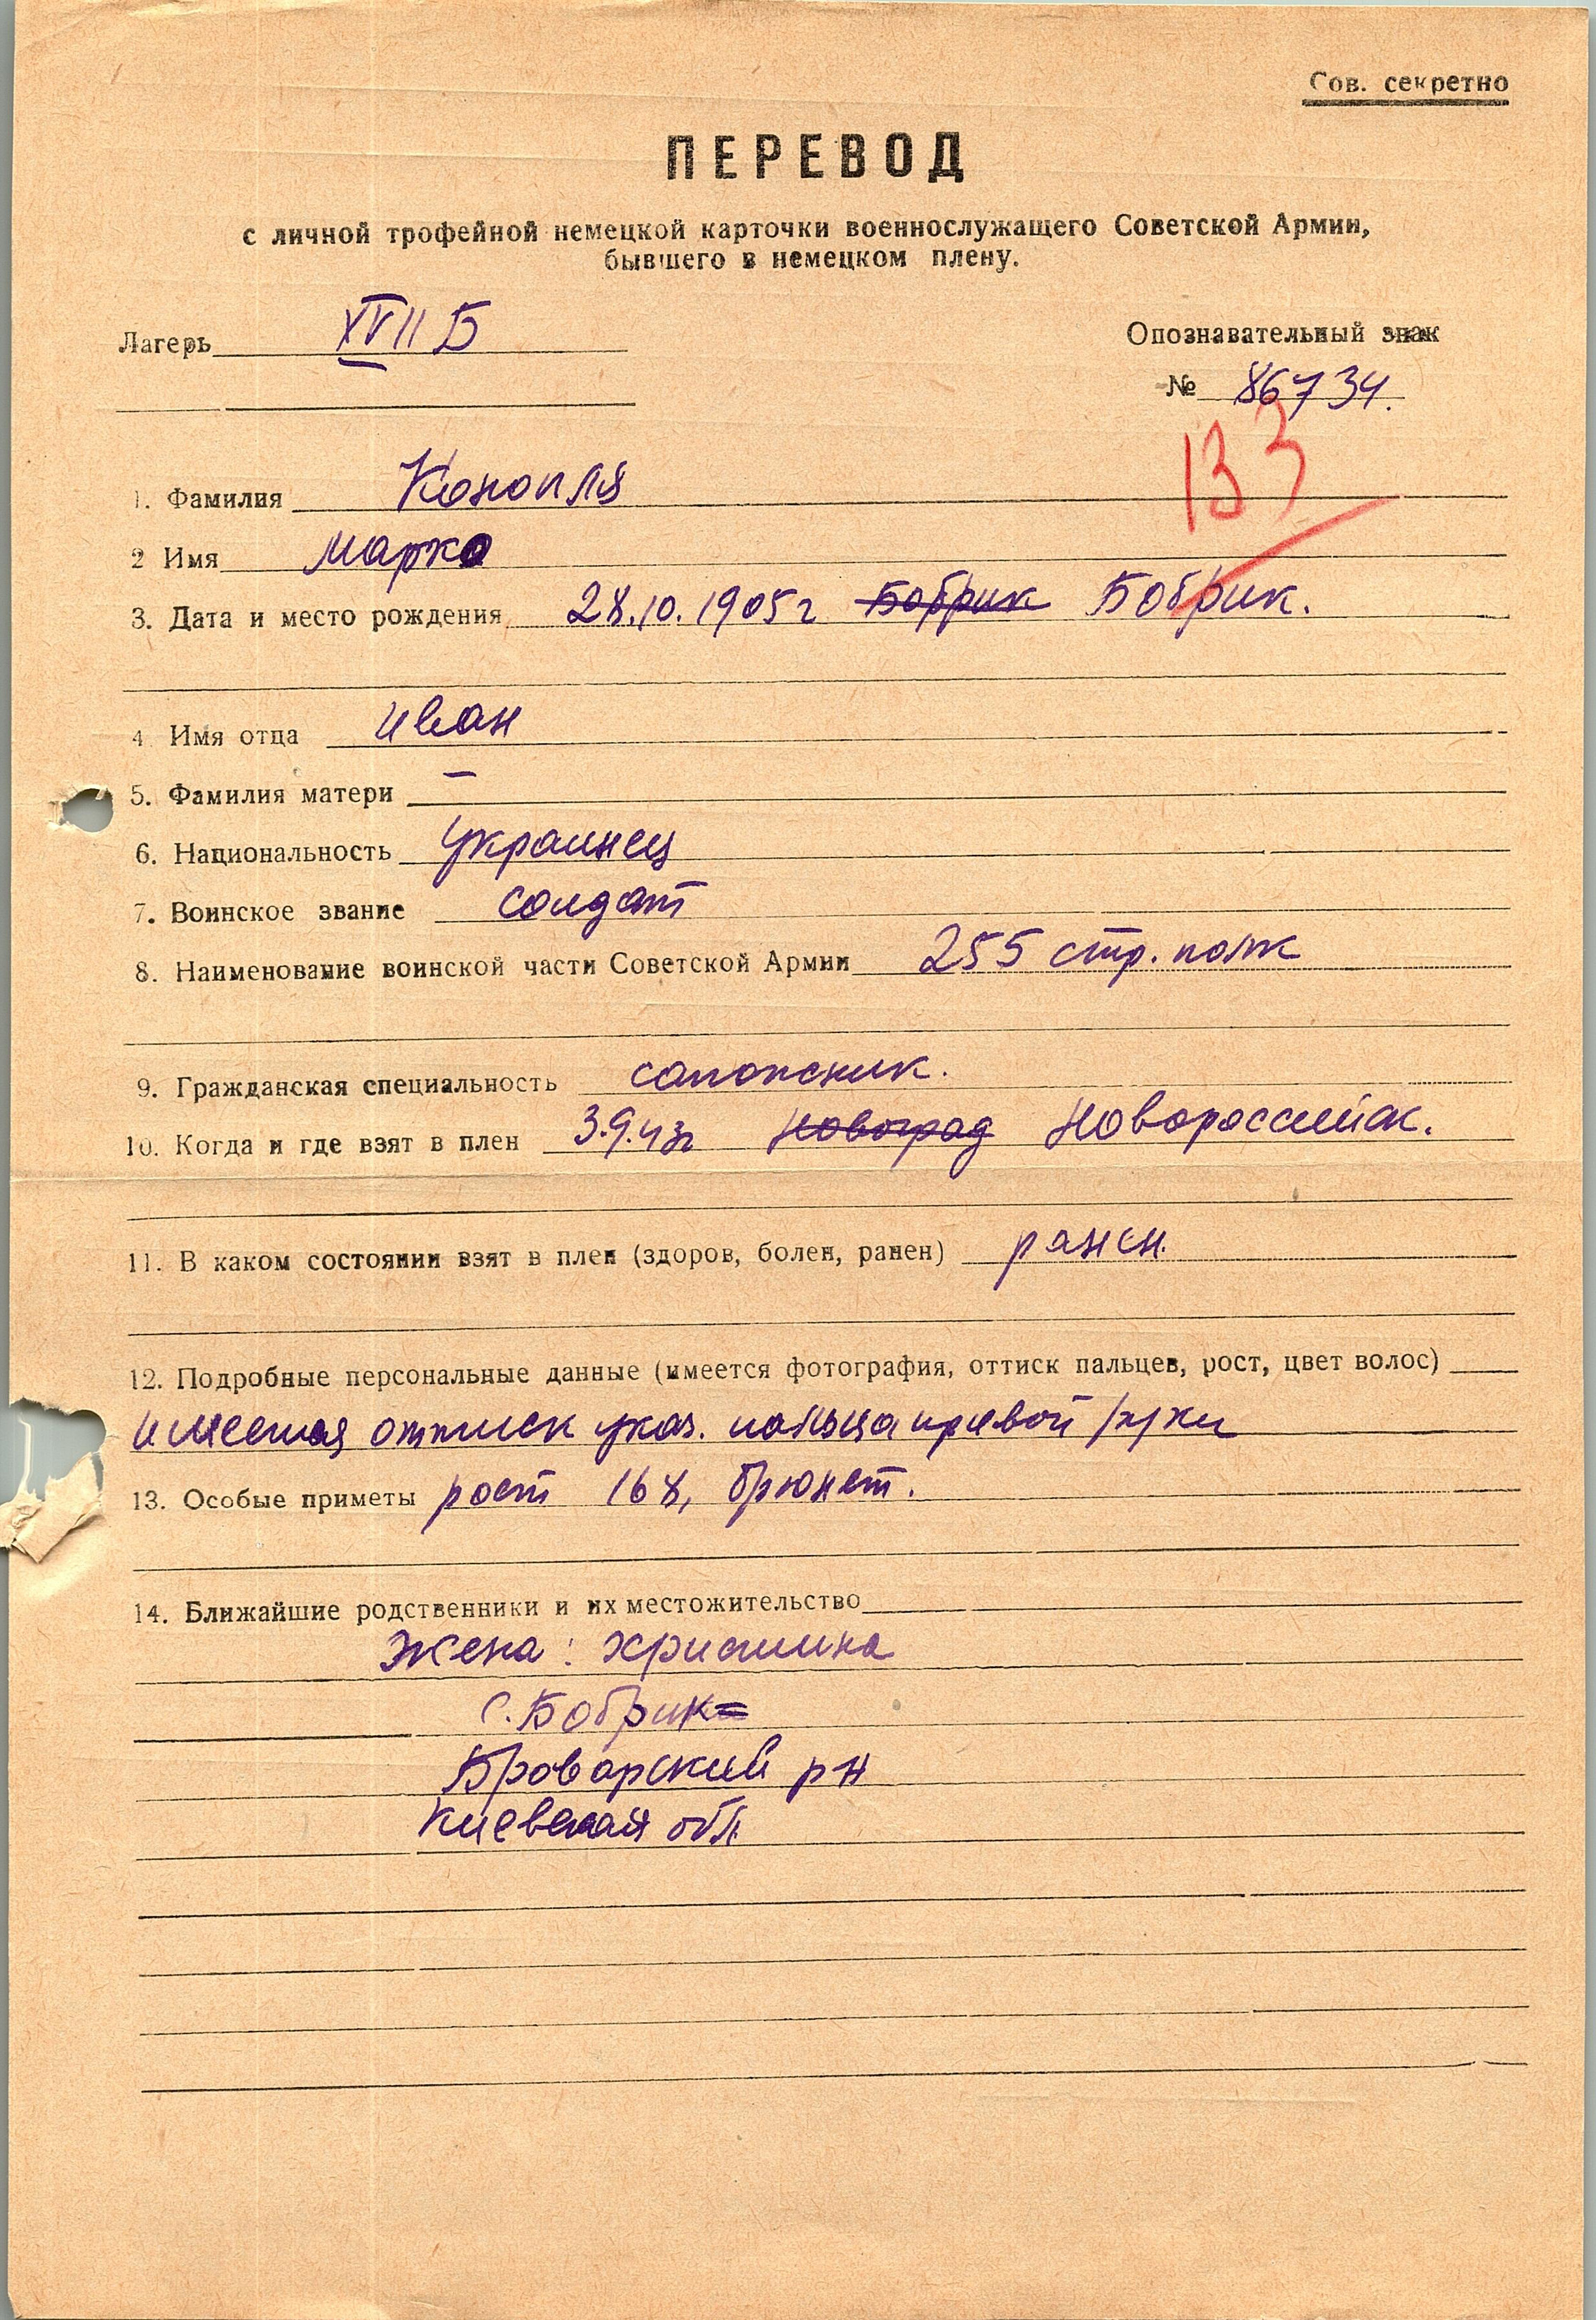 Сов. секретно
ПЕРЕВОД
с личной трофейной немецкой карточки военнослужащего Советской Армии,
бывшего в немецком плену.
Лагерь XVII Б
Опознавательный знак
№ 86734.
133
1. Фамилия Конопля
2 Имя Марко
3. Дата и место рождения 28.10.1905г Бобрик Бобрик.
4 Имя отца Иван
5. Фамилия матери —
6. Национальность Украинец
7. Воинское звание солдат
8. Наименование воинской части Советской Армии 255 стр. полк
9. Гражданская специальность сапожник.
10. Когда и где взят в плен 3.9.43г Новоград Новороссийск.
11. В каком состоянии взят в плен (здоров, болен, ранен) ранен.
12. Подробные персональные данные (имеется фотография, оттиск пальцев, рост, цвет волос)
имеется оттиск указ. пальца правой руки
13. Особые приметы рост 168, брюнет.
14. Ближайшие родственники и их местожительство
Жена: Христина
с. Бобрик
Броварский рн
Киевская обл.